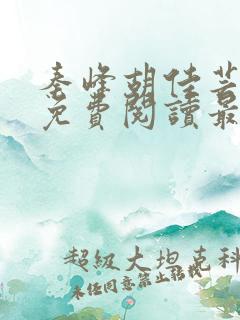 秦峰胡佳芸
免費閱讀最
超級大坦克科
未经同意禁止转载